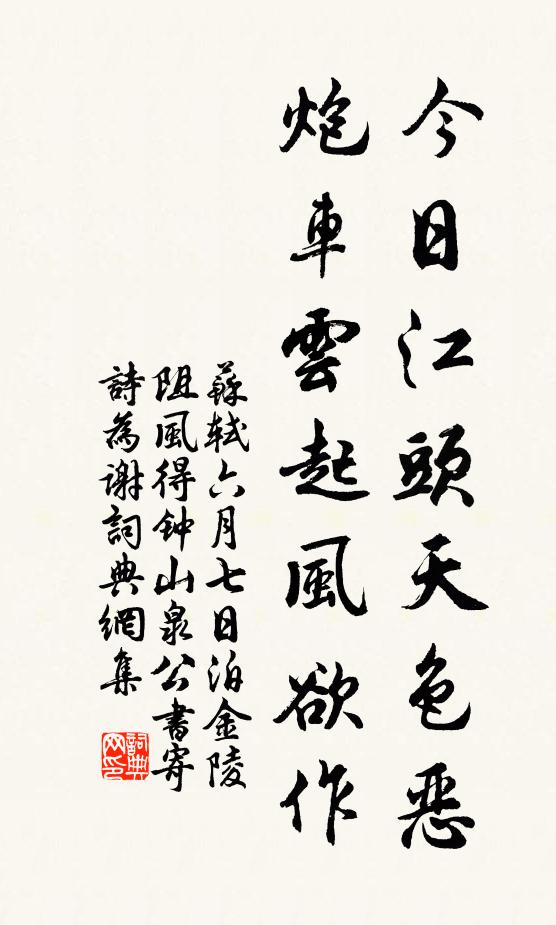 今日江頭天色惡
炮車雲起風欲作
蘇軾六月七日泊金陵
阻風得钟山泉公書寄
詩為謝詞典網集
詞典网印